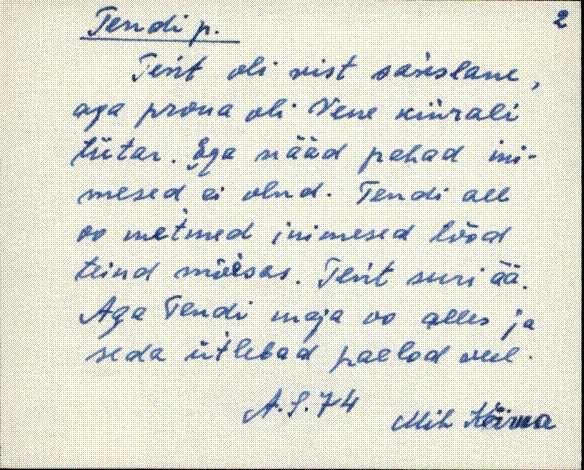 Tendi p. 2
Tent oli vist saarlane,
aga proua oli Vene kiirali
tütar. Ega nääd pahad ini-
mesed ei olnd. Tendi all
oo metmed inimesed tööd
teind mõisas. Tent suri ää.
Aga Tendi maja oo alles ja
seda ütlebad paelod veel.
A.S. 74 Mih